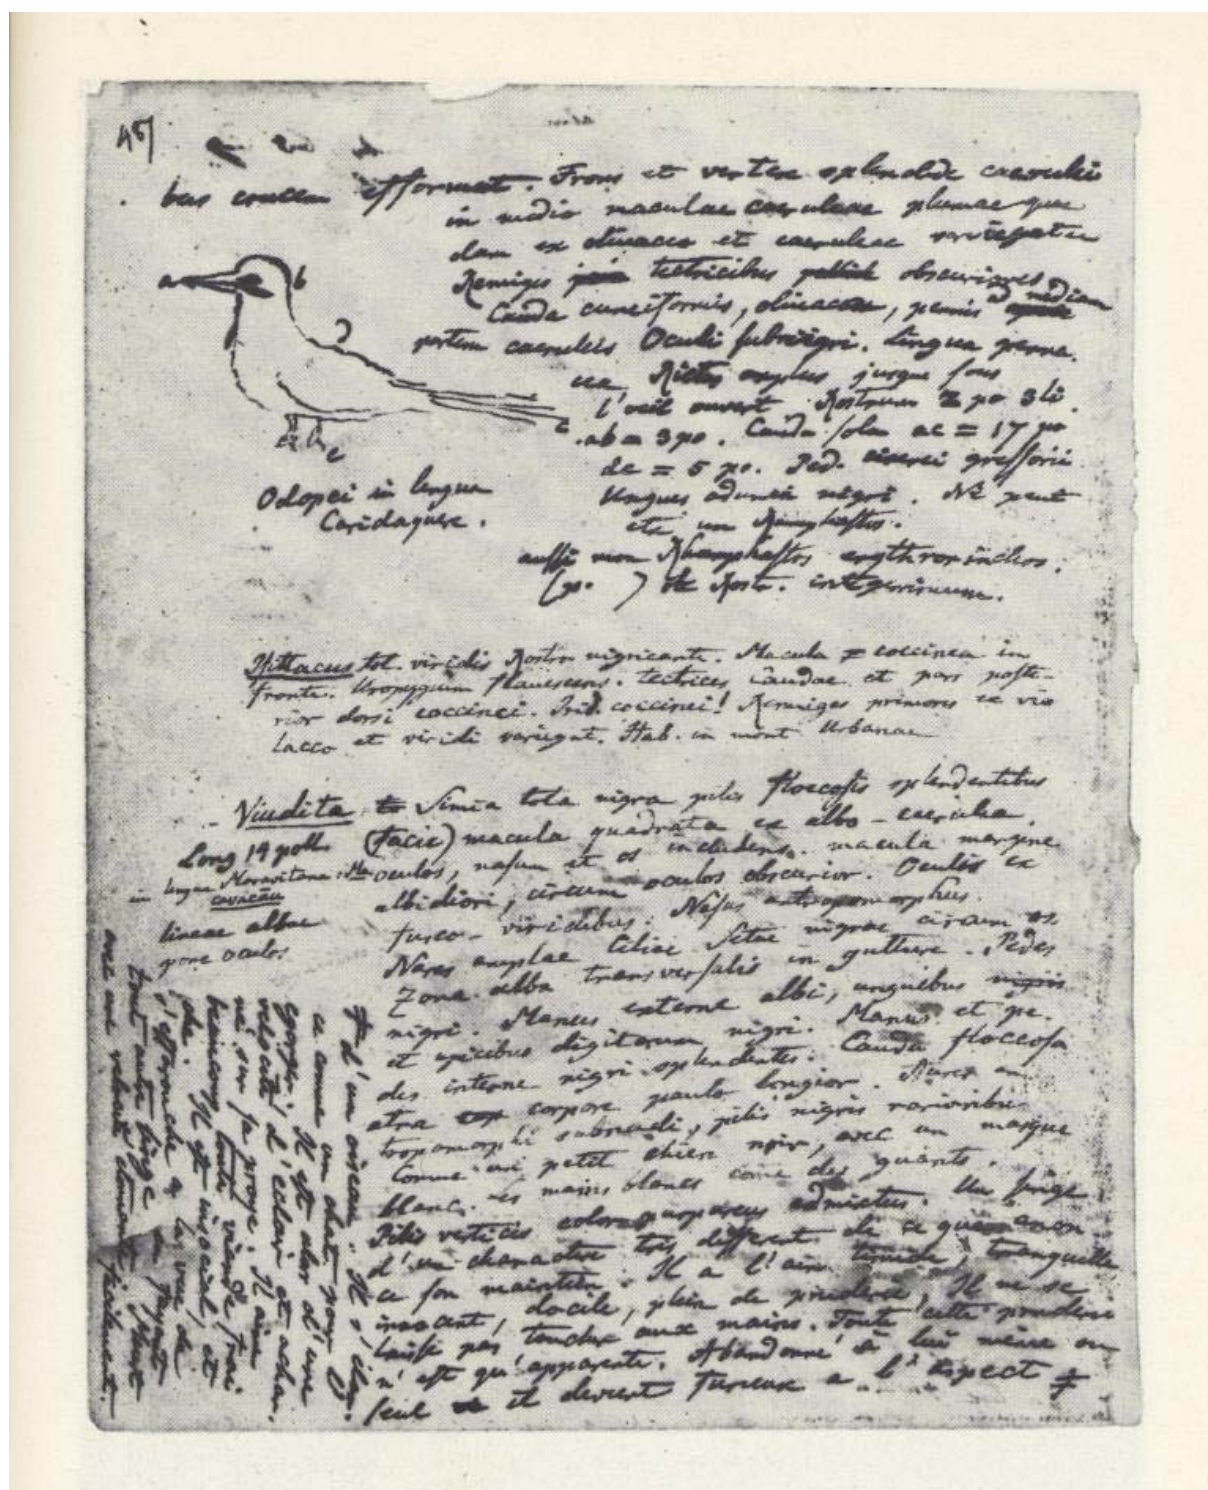 45
bus concem efformant. Frons et vertex splendide caerulei
in medio maculae caeruleae plumae quae
dam ex olivaceo et caeruleae variegatae
Remiges tectricibus obscuriores
Cauda cuneiformis, olivacea, pennis ad mediam
partem caeruleis Oculi subnigri. Lingua penna
cea Rictus amplus jusque sous
l'oeil ouvert Rostrum 2 po 3 li.
a b
c
e
ab = 3 po. Cauda sola ac = 17 po
de = 5 po. Ped. cinerei gressorii
Ungues adunci nigri. Ne peut
etr un Ramphastos.
Odopei in lengua
Caridaquere.
aussi mon Rhamphastos erythrorinchos.
(p. ) Rostr. integerrimum.
Psittacus tot. viridis Rostro nigricante. Macula coccinea in
fronte. Uropygium flavescens. tectrices Caudae et pars poste-
rior dorsi coccinei. Irid. coccinei! Remiges primores ex vio
lacco et viridi variegat. Hab. in mont Urbanae
Viudita Simia tota nigra pilis floccosis splendentibus
Long 14 poll. (facie) macula quadrata ex albo-caerulea.
in lingua Maravitana
cavacau
lineae albae
pone oculos
oculos, nasum et os includens. macula margine
albidiori, circum oculos obscurior. Oculis ex
fusco-viridibus. Nasus antropomorphus.
Nares amplae Ciliae Setae nigrae circum os.
Zona alba transversalis in gutture. Pedes
nigri. Manus externe albi, unguibus nigris
et apicibus digitorum nigri. Manus et pe.
des interne nigri splendentes. Cauda floccosa
atra corpore paulo longior. Aures an
tropomorphi subnudi, pilis nigris rarioribus
Comme un petit chien noir, avec un masque
blanc. Les mains blancs come des guants.
Pilis verticis colore purpureus admixtus. Un singe
d'un charactere très different de ce que anon
ce son maintien. Il a l'air timide, tranquille
innocent, docile, plein de pruderie, Il ne se
laisse pas toucher aux mains. Toute cette pruderie
n'est qu'apparente. Abandonné à lui même ou
seul il devient furieux a l'aspect
d'un oiseau. Il s'élan
ce comme un chat pour l'
egorger. Il est alors d'une
velocité d'eclair et achar.
né sur sa proye. Il aime
beaucoup toute viande frai.
che. Il est insocial, et
s'effrouche a la vue de
tout autre singe en fuyant
avec une velocité etonnante facilement.